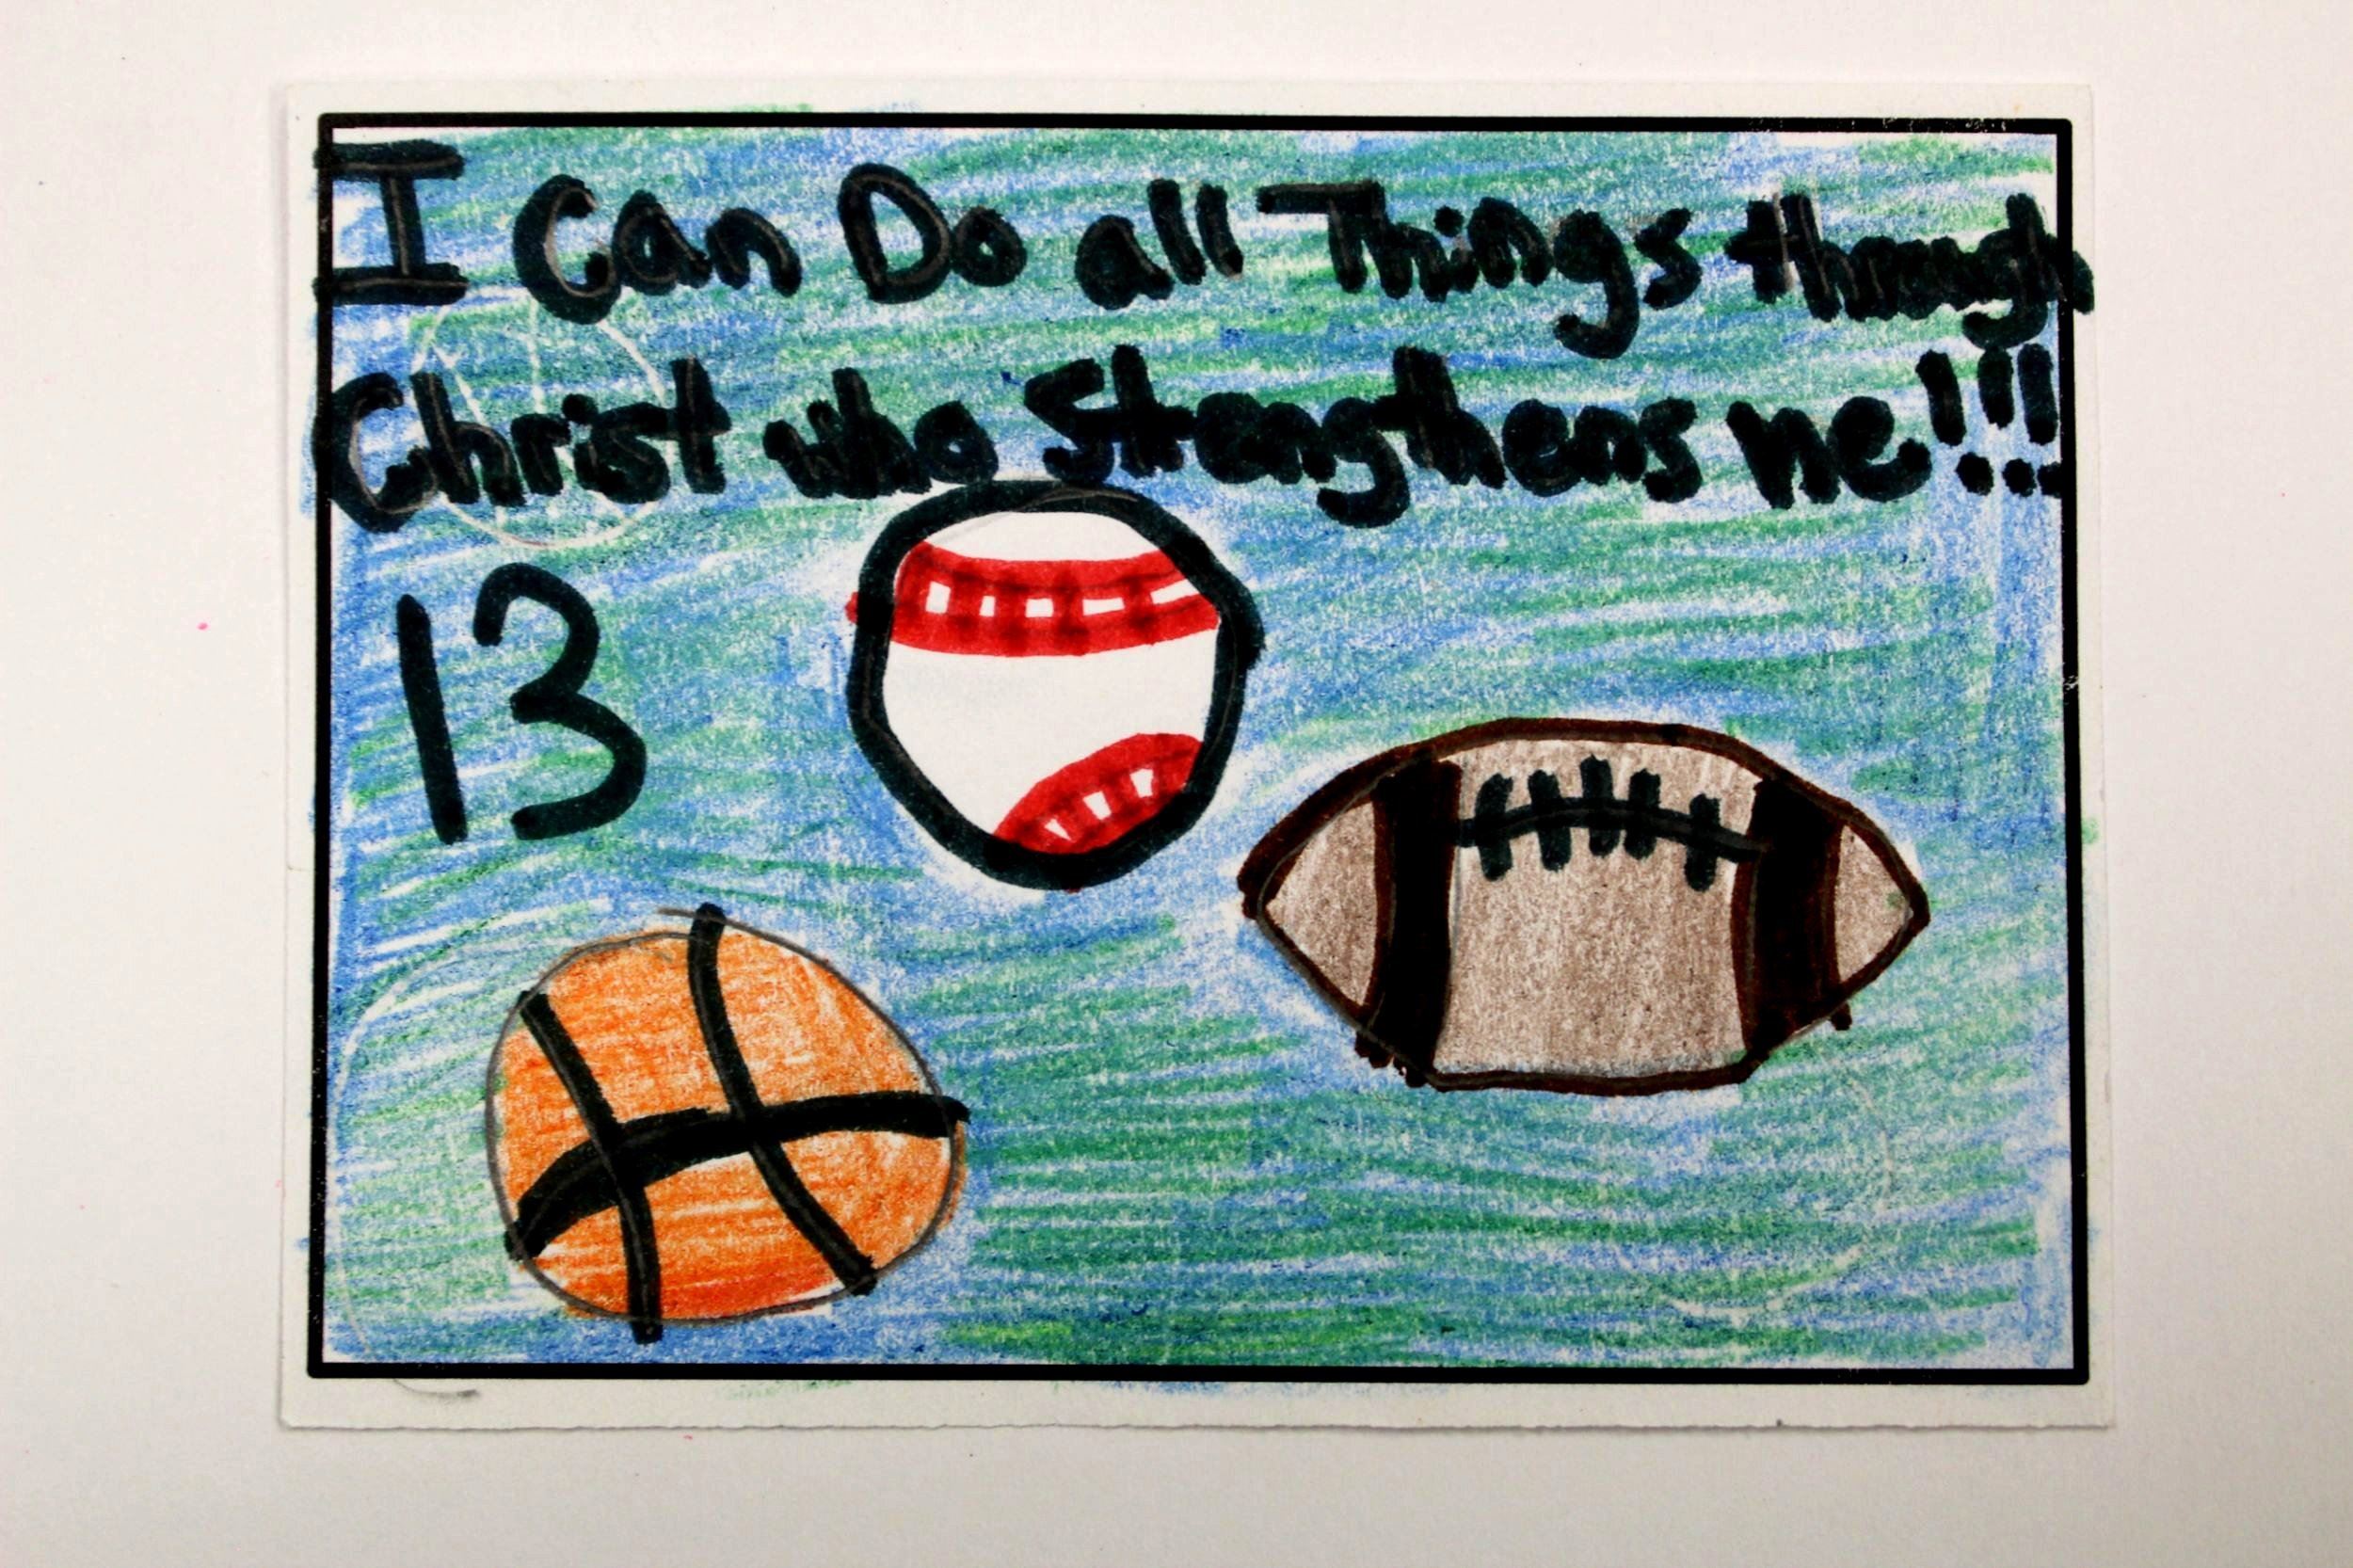 I Can Do all Things through
Christ who Strengthens me!!!
13